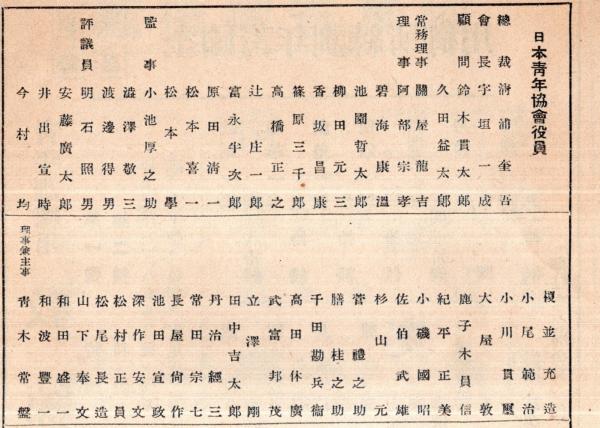 日本青年協會役員
總裁 淸浦奎吾
會長 宇垣一成
顧問 鈴木貫太郎
久田益太郎
常務理事 關屋龍吉
理事 阿部宗孝
碧海康溫
池園哲太郎
柳田元三
香坂昌康
篠原三千郎
高橋正之
辻庄一郎
富永半次郎
原田淸一
松本喜一
松本學
監事 小池厚之助
澁澤敬三
渡邊得男
評議員 明石照男
安藤廣太郎
井出宣時
今村均
榎並充造
小尾範治
小川貫璽
大屋敦
鹿子木員信
紀平正美
小磯國昭
佐伯武雄
杉山元
菅禮之助
膳桂之助
千田勘兵衞
高田休廣
武富邦茂
立澤剛
田中吉太郎
丹治經三
常田宗七
長屋尙作
池田宣政
深作安文
松村正員
松尾長造
山下奉文
和田盛一
和波豐一
理事兼主事 靑木常盤